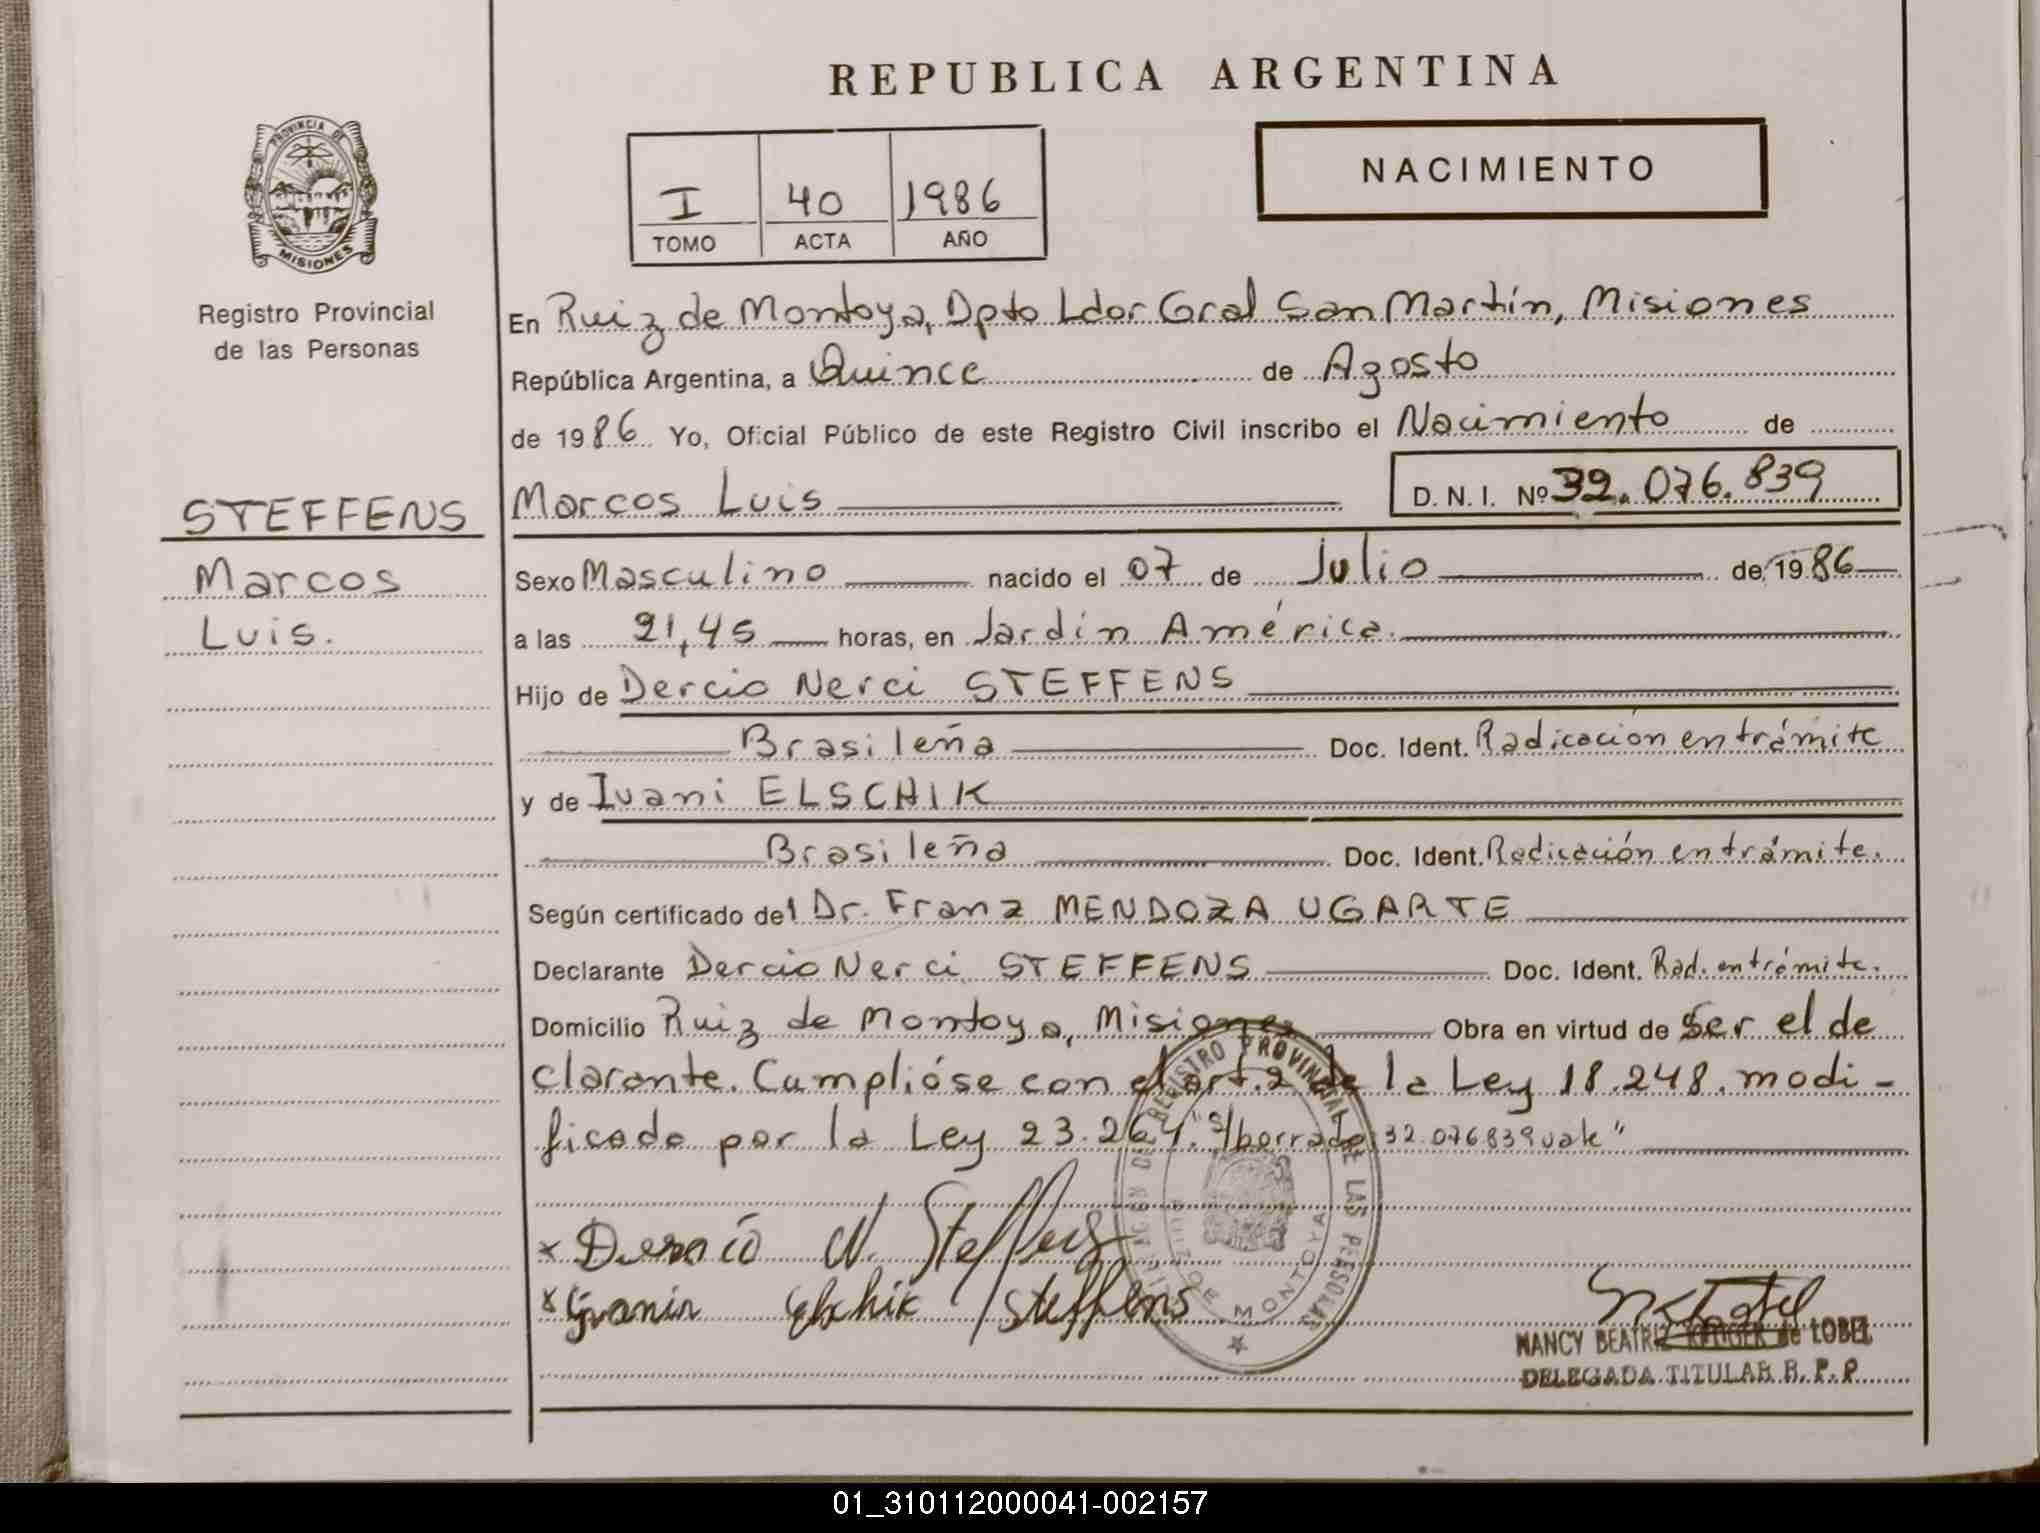 REPUBLICA ARGENTINA
PROVINCIA DE MISIONES
Registro Provincial
de las Personas
I 40 1986
TOMO ACTA AÑO
NACIMIENTO
En Ruiz de Montoya, Dpto Ldor Gral San Martín, Misiones
República Argentina, a Quince de Agosto
de 1986 Yo, Oficial Público de este Registro Civil inscribo el Nacimiento de
STEFFENS
Marcos
Luis.
Marcos Luis D. N. I. Nº 32.076.839
Sexo Masculino nacido el 07 de Julio de 1986
a las 21,45 horas, en Jardín América.
Hijo de Dercio Nerci STEFFENS
Brasileña Doc. Ident. Radicación en trámite
y de Ivani ELSCHIK
Brasileña Doc. Ident. Radicación en trámite.
Según certificado del Dr. Franz MENDOZA UGARTE
Declarante Dercio Nerci STEFFENS Doc. Ident. Rad. en trámite.
Domicilio Ruiz de Montoya, Misiones Obra en virtud de Ser el de
clarante. Cumplióse con el art. 2 de la Ley 18.248. modi-
ficada por la Ley 23.264. "S/borrado: 32.076.839 vale"
REGISTRO PROVINCIAL DE LAS PERSONAS
RUIZ DE MONTOYA
x N. Steffens
x Elschik / Steffens
NANCY BEATRIZ KRUGER de LOBEL
DELEGADA TITULAR R. P. P.
01_310112000041-002157